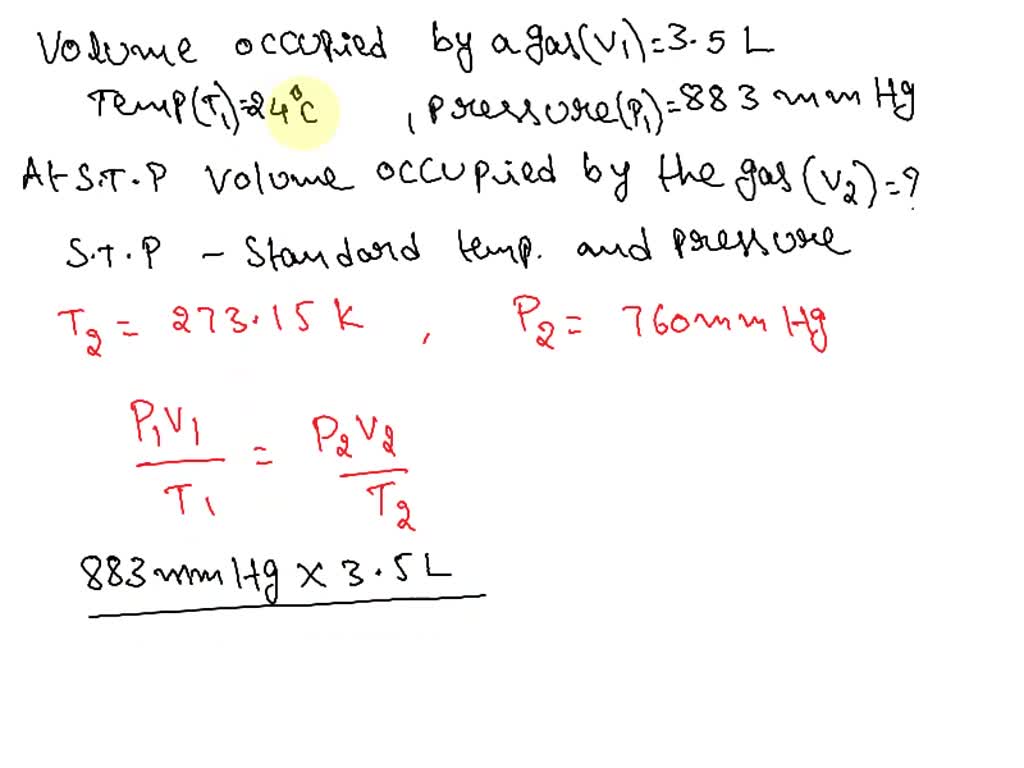 Volume occupied by a gas(V1)=3.5 L
Temp(T1)=24°C , pressure(P1)=883 mm Hg
At S.T.P volume occupied by the gas (V2)=?
S.T.P - Standard temp. and pressure
T2 = 273.15 K , P2 = 760mm Hg
P1V1 / T1 = P2V2 / T2
883 mm Hg x 3.5 L